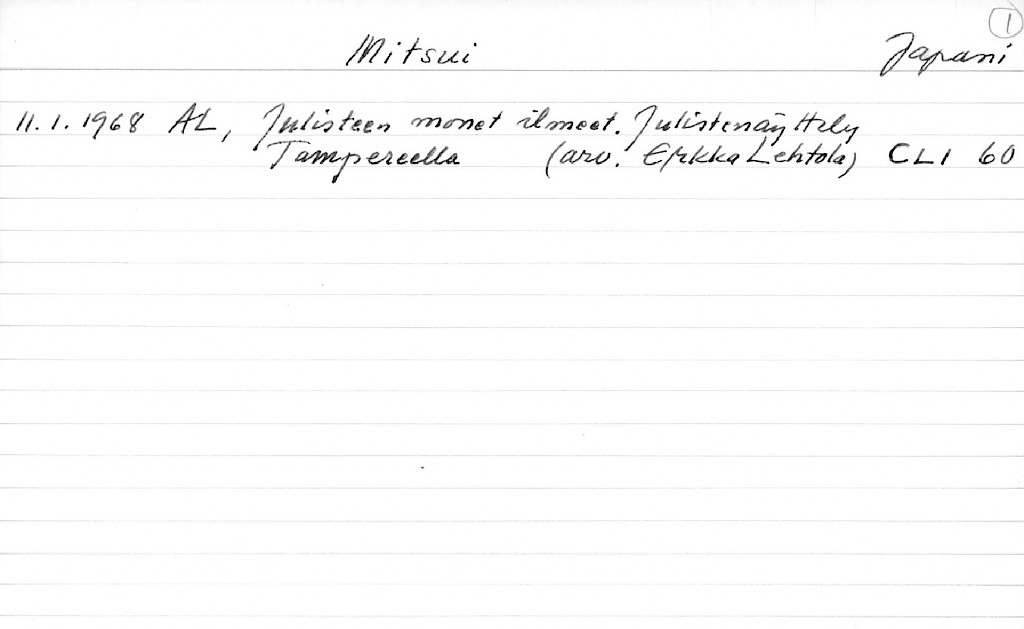 1
Mitsui Japani
11.1.1968 AL, Julisteen monet ilmeet. Julistenäyttely
Tampereella (arv. Erkka Lehtola) CLI 60